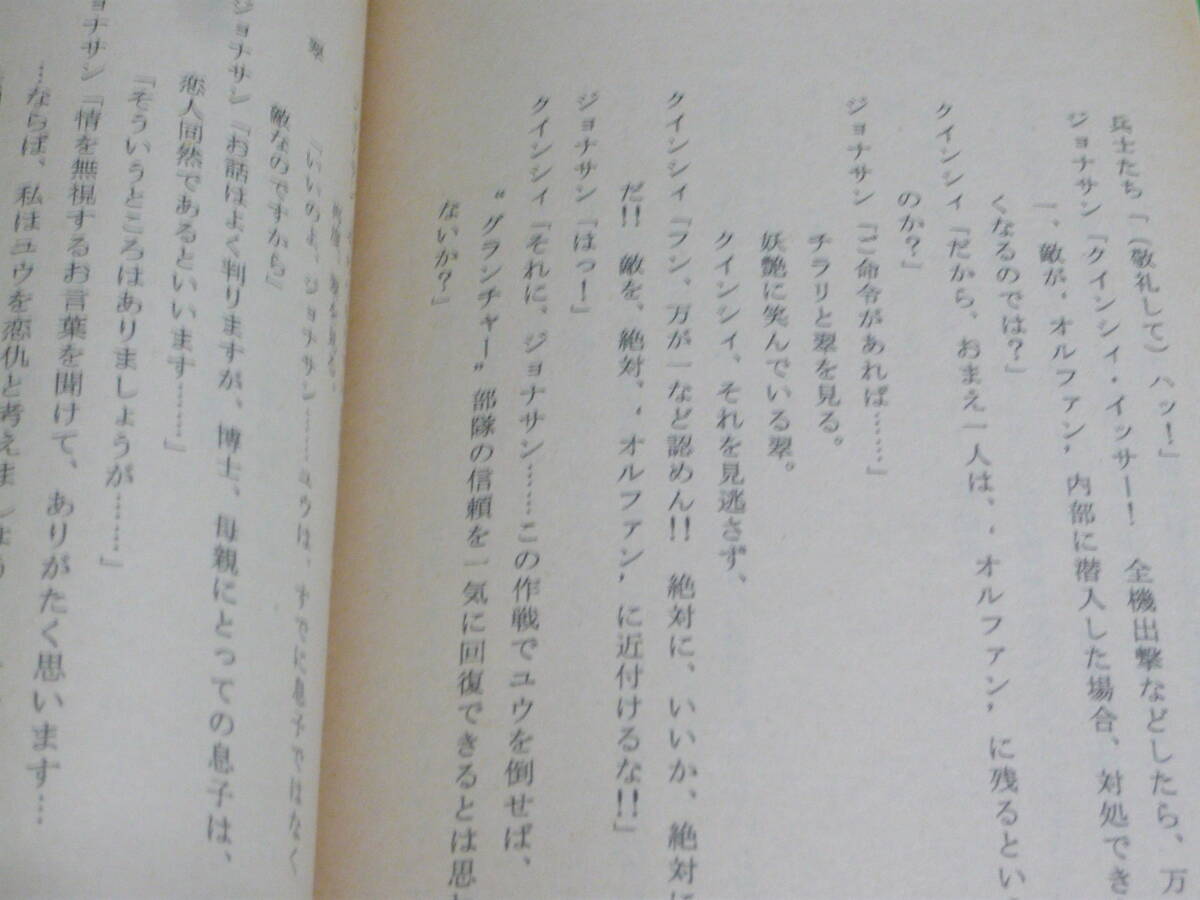 兵士たち「(敬礼して)ハッ!」
ジョナサン「クインシィ・イッサー! 全機出撃などしたら、万
一、敵が、オルファン’内部に潜入した場合、対処でき
くなるのでは?」
クインシィ「だから、おまえ一人は、‘オルファン’に残るとい
のか?」
ジョナサン「ご命令があれば……」
チラリと翠を見る。
妖艶に笑んでいる翠。
クインシィ、それを見逃さず、
クインシィ「フン、万が一など認めん!! 絶対に、いいか、絶対に
だ!! 敵を、絶対、‘オルファン’に近付けるな!!」
ジョナサン「はっ!」
クインシィ「それに、ジョナサン……この作戦でユウを倒せば、
“グランチャー”部隊の信頼を一気に回復できるとは思
ないか?」
翠
「いいのよ、ジョナサン……ユウは、すでに息子ではなく
敵なのですから」
ジョナサン「お話はよく判りますが、博士、母親にとっての息子は、
恋人同然であるといいます……」
「そういうところはありましょうが……」
ョナサン「情を無視するお言葉を聞けて、ありがたく思います…
…ならば、私はユウを恋仇と考えましょう